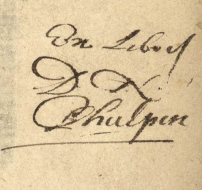 Ex Libris
D. D.
Phulpin